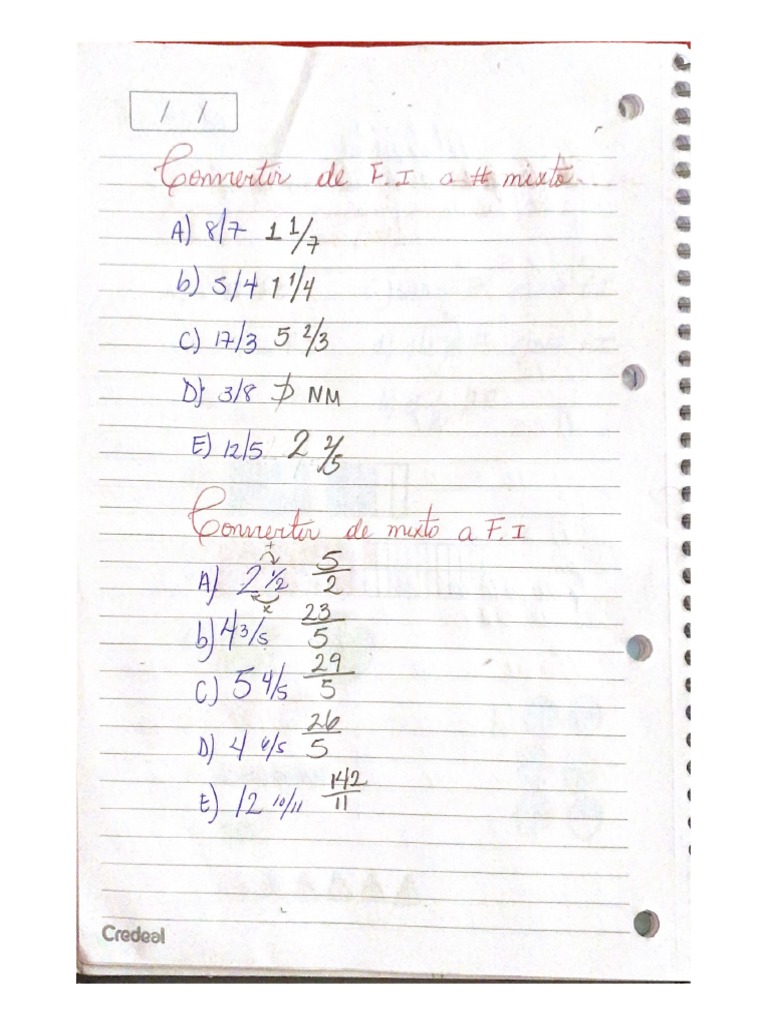 / /
Convertir de F.I a # mixto.
A) 8/7 1 1/7
b) 5/4 1 1/4
C) 17/3 5 2/3
D) 3/8 NM
E) 12/5 2 2/5
Convertir de mixto a F.I
+
A) 2 1/2 5/2
x
b) 4 3/5 23/5
C) 5 4/5 29/5
D) 4 6/5 26/5
E) 12 10/11 142/11
Credeal